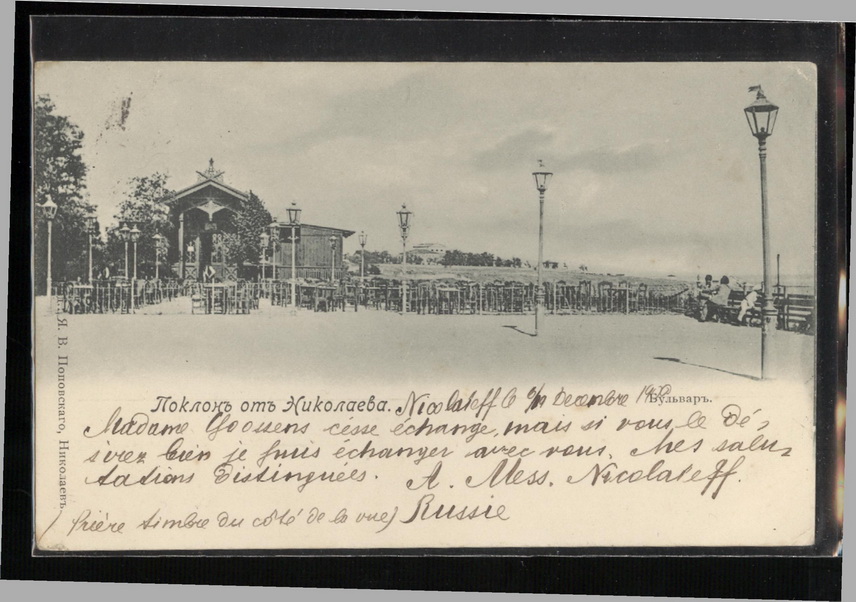 Поклонъ отъ Николаева. Nicolaieff decembre
Бульваръ.
Madame Goossens césse échange, mais si vous le dé-
sirez bien je puis échanger avec vous. Mes salu-
tations Distinguées. A. Mess. Nicolaieff.
(Prière timbre du côté de la vue) Russie
Я. В. Поповскаго, Николаевъ.